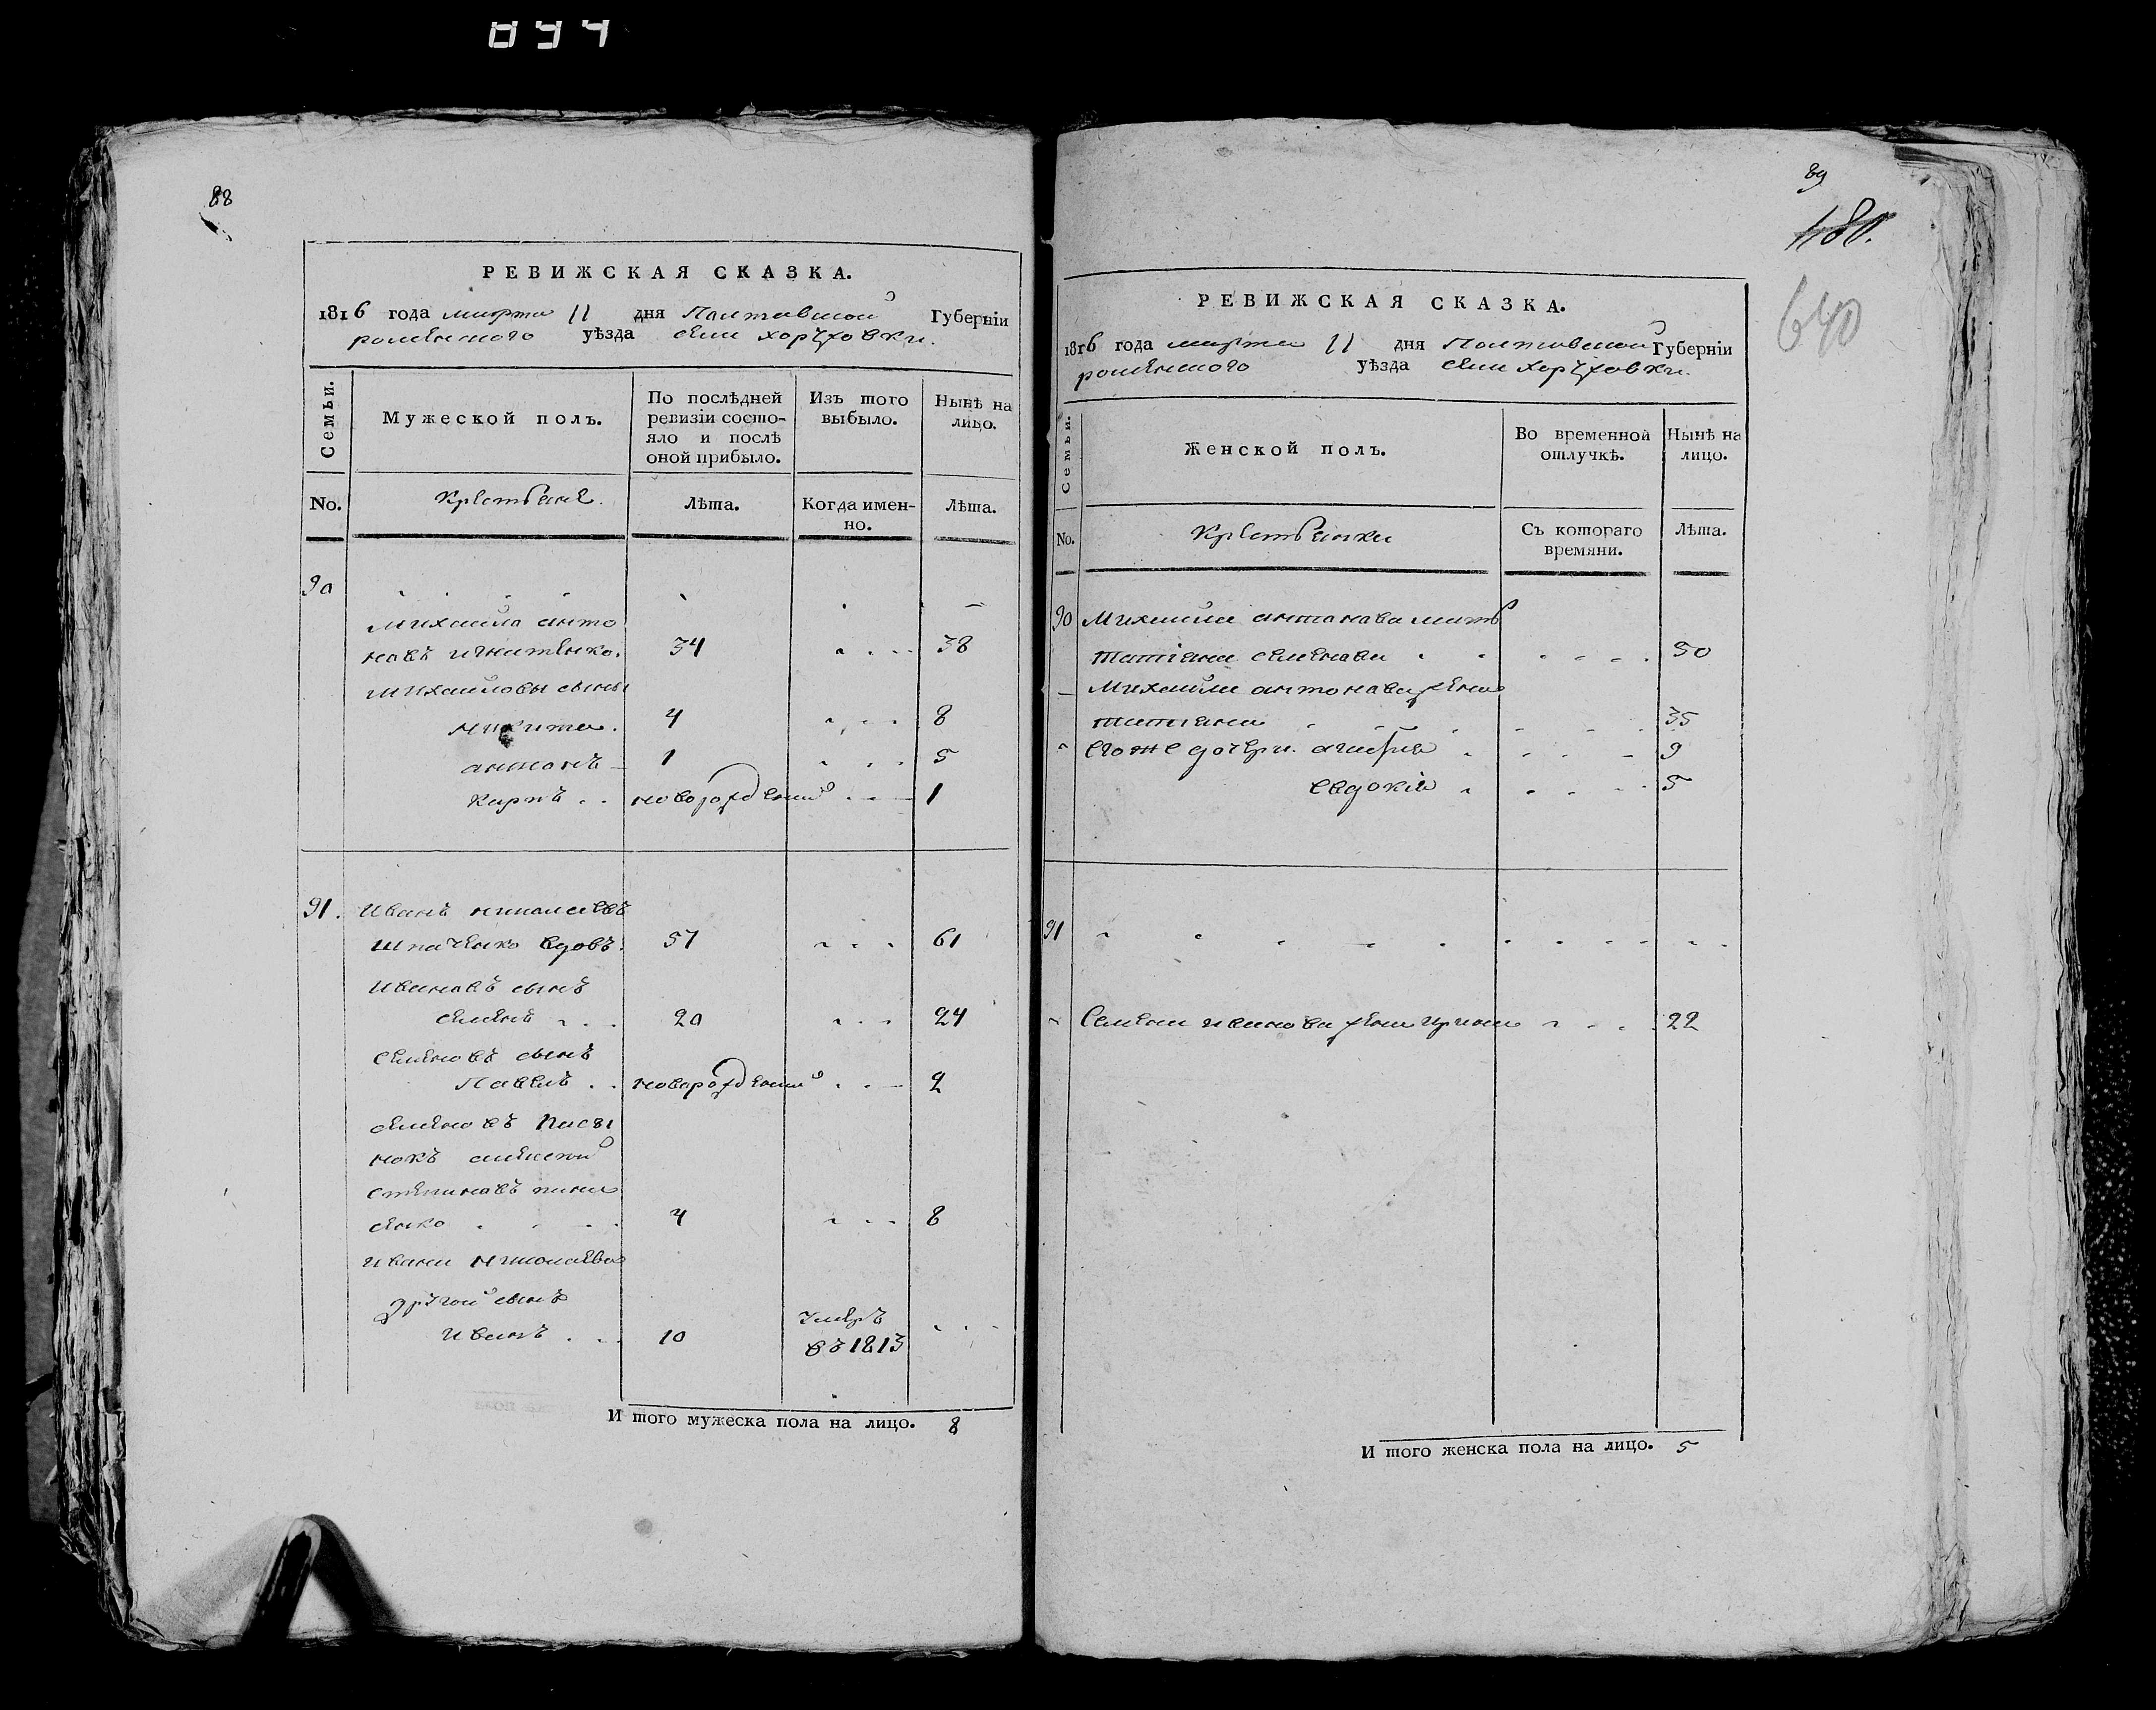 894
88
РЕВИЖСКАЯ СКАЗКА.
1816 года марта 11 дня Полтавской Губерніи
роменского уѣзда села хоружовки.
Семьи.
Мужеской полъ.
По послѣдней ревизіи состо-
яло и послѣ оной прибыло.
Изъ того выбыло.
Нынѣ на лицо.
No.
Крестьяне.
Лѣта.
Когда имен-
но.
Лѣта.
90
Михайла анто
новъ игнатенко. 34 38
михайловы сыны
никита. 4 8
антонъ 1 5
карпъ новорожденный 1
91. Иванъ николаевъ
шпаченко вдовъ. 57 61
Ивановъ сынъ
семенъ 20 24
семеновъ сынъ
Павелъ новорожденный 2
семеновъ пасы
нокъ алексей
степановъ
сенко 4 8
ивана николаева
другой сынъ
иванъ 10 умеръ
въ 1813
И того мужеска пола на лицо. 8
89
180.
640
РЕВИЖСКАЯ СКАЗКА.
1816 года марта 11 дня Полтавской Губерніи
роменского уѣзда села хоружовки.
Семьи.
Женской полъ.
Во временной отлучкѣ.
Нынѣ на лицо.
No.
Крестьянки
Съ котораго времяни.
Лѣта.
90 Михайла антонова мать
татіана семенова 50
Михайла антонова жена
татіана 35
его же дочери. агафия 9
евдокія 5
91
Семена иванова жена ирина 22
И того женска пола на лицо. 5